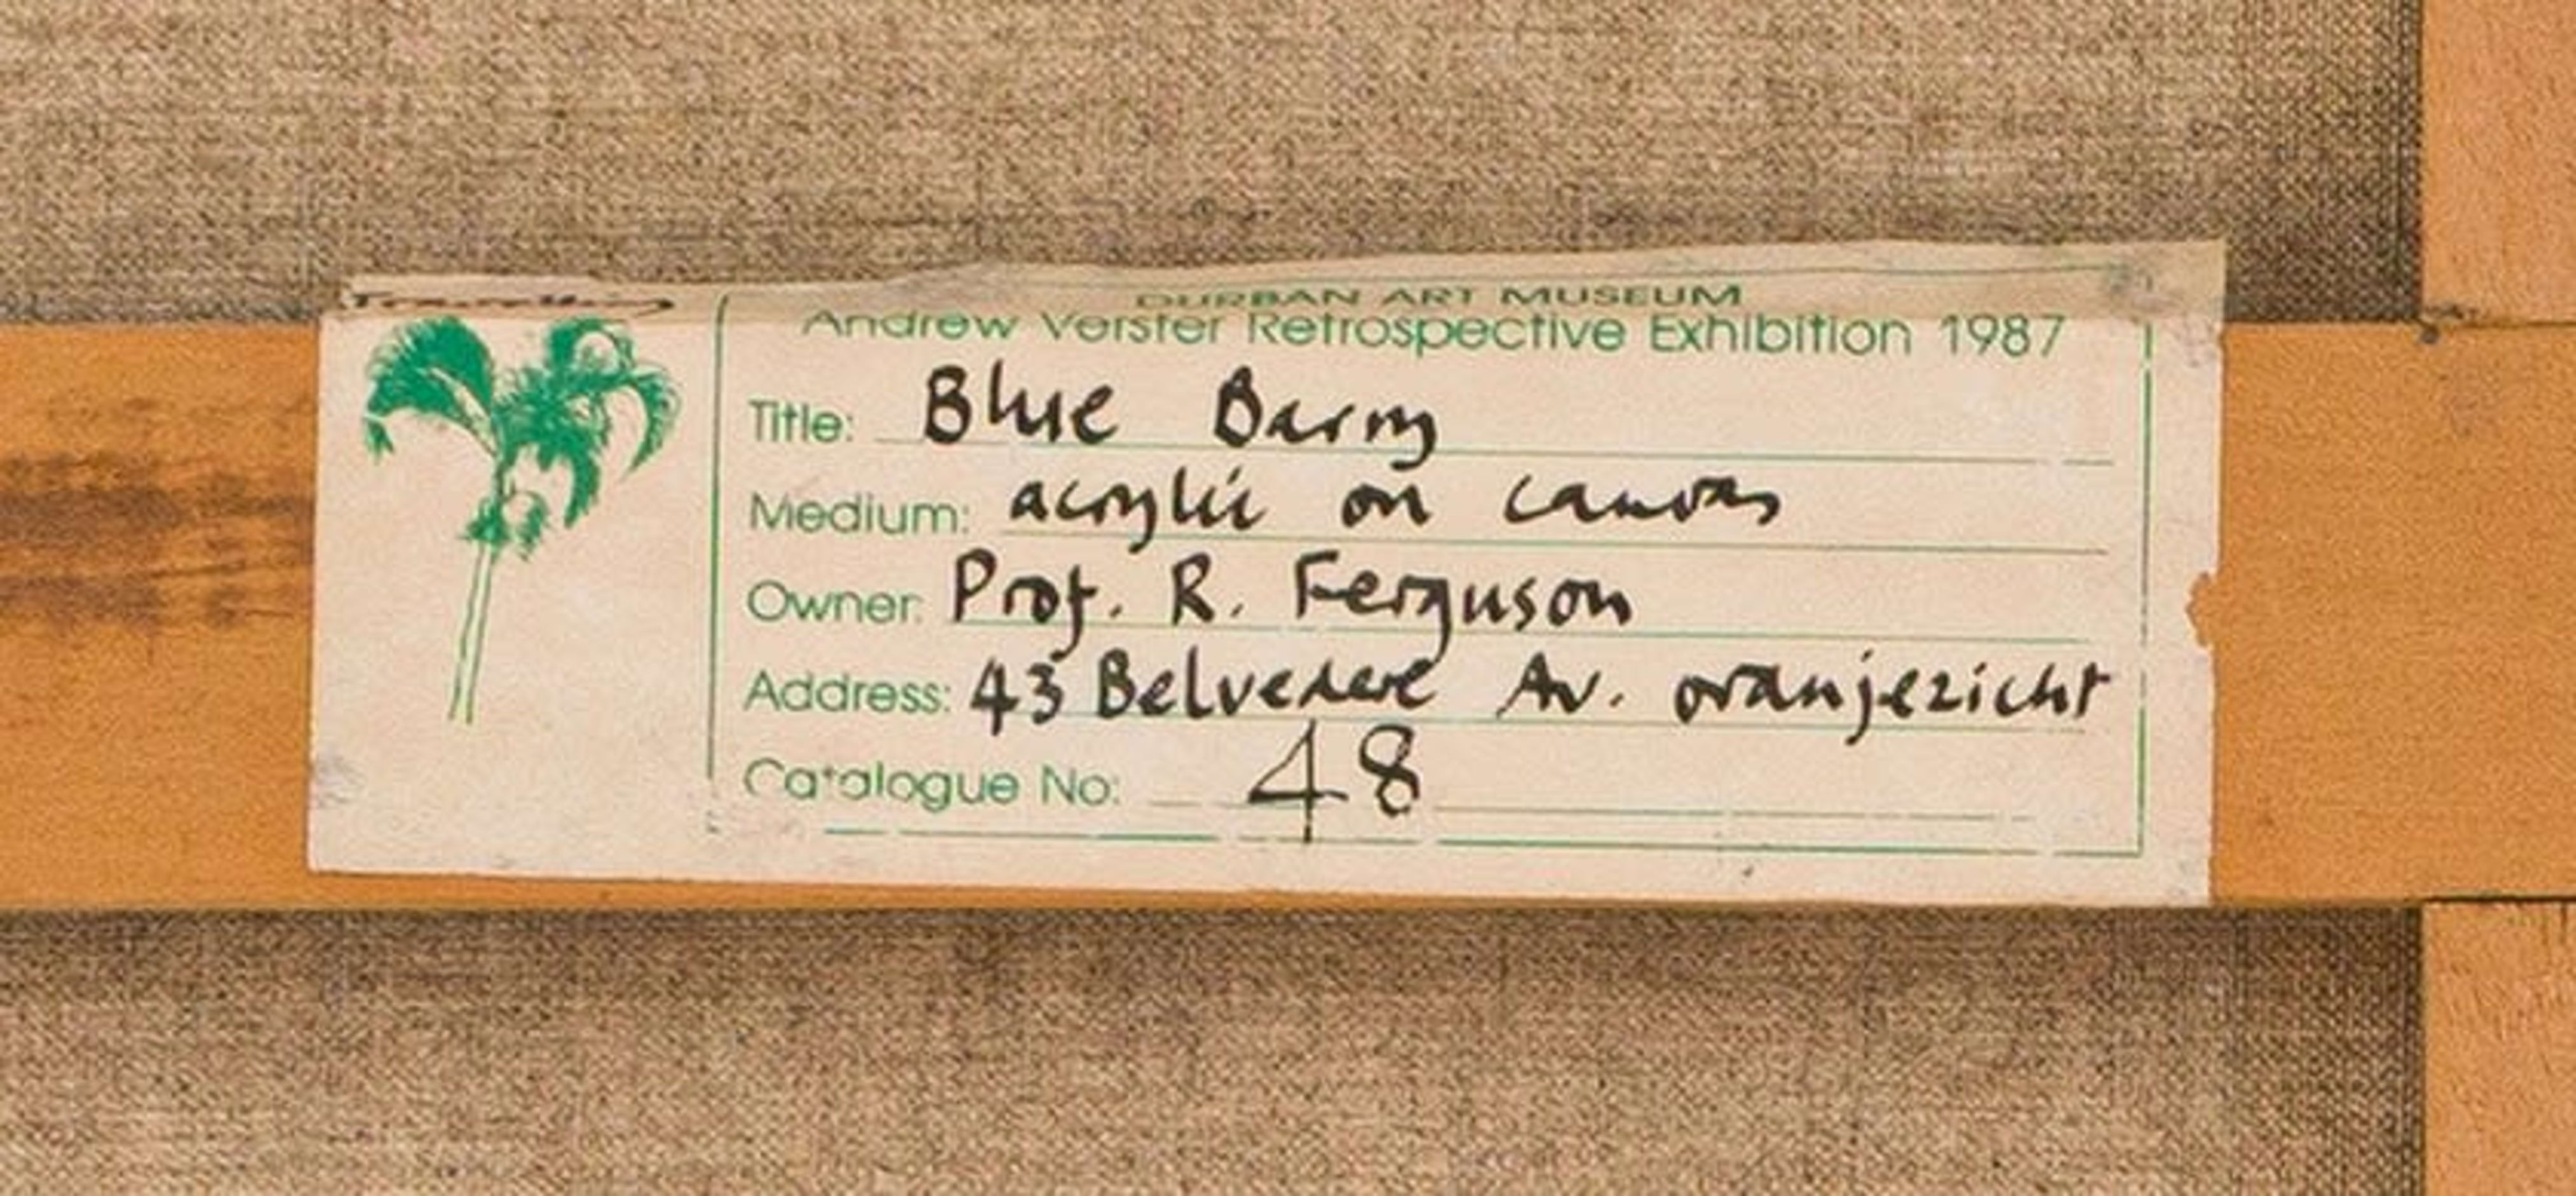 Travelling
DURBAN ART MUSEUM
Andrew Verster Retrospective Exhibition 1987
Title: Blue Barry
Medium: acrylic on canvas
Owner: Prof. R. Ferguson
Address: 43 Belvedere Av. oranjezicht
Catalogue No: 48